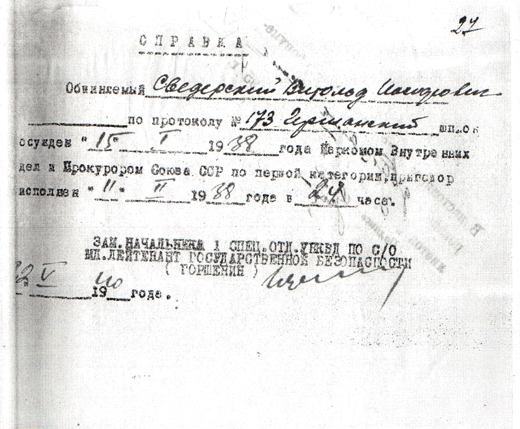 27
СПРАВКА
Обвиняемый Сведерский Витольд
по протоколу № 173 Германский шпион
осужден "15" I 1938 года Наркомом Внутренних
дел и Прокурором Союза ССР по первой категории, приговор
исполнен "11" II 1938 года в 24 часа.
ЗАМ. НАЧАЛЬНИКА 1 СПЕЦ. ОТД. УНКВД ПО С/О
МЛ. ЛЕЙТЕНАНТ ГОСУДАРСТВЕННОЙ БЕЗОПАСНОСТИ
( ГОРШЕНИН )
V 1940 года.